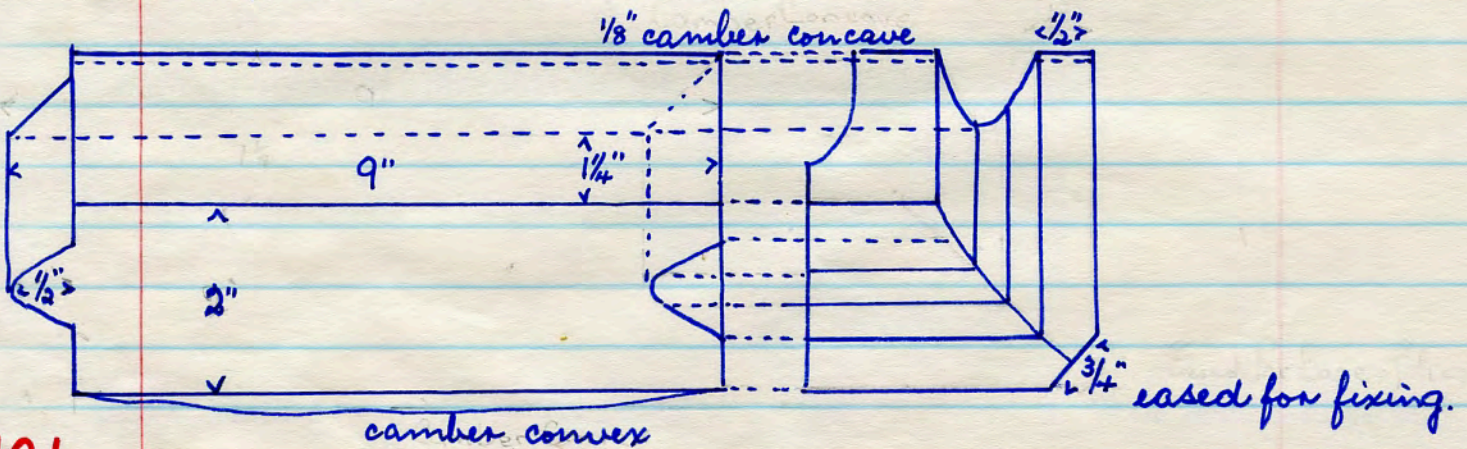 1/8" camber concave
1/2"
9"
1 1/4"
1/2"
2"
3/4"
eased for fixing.
camber convex